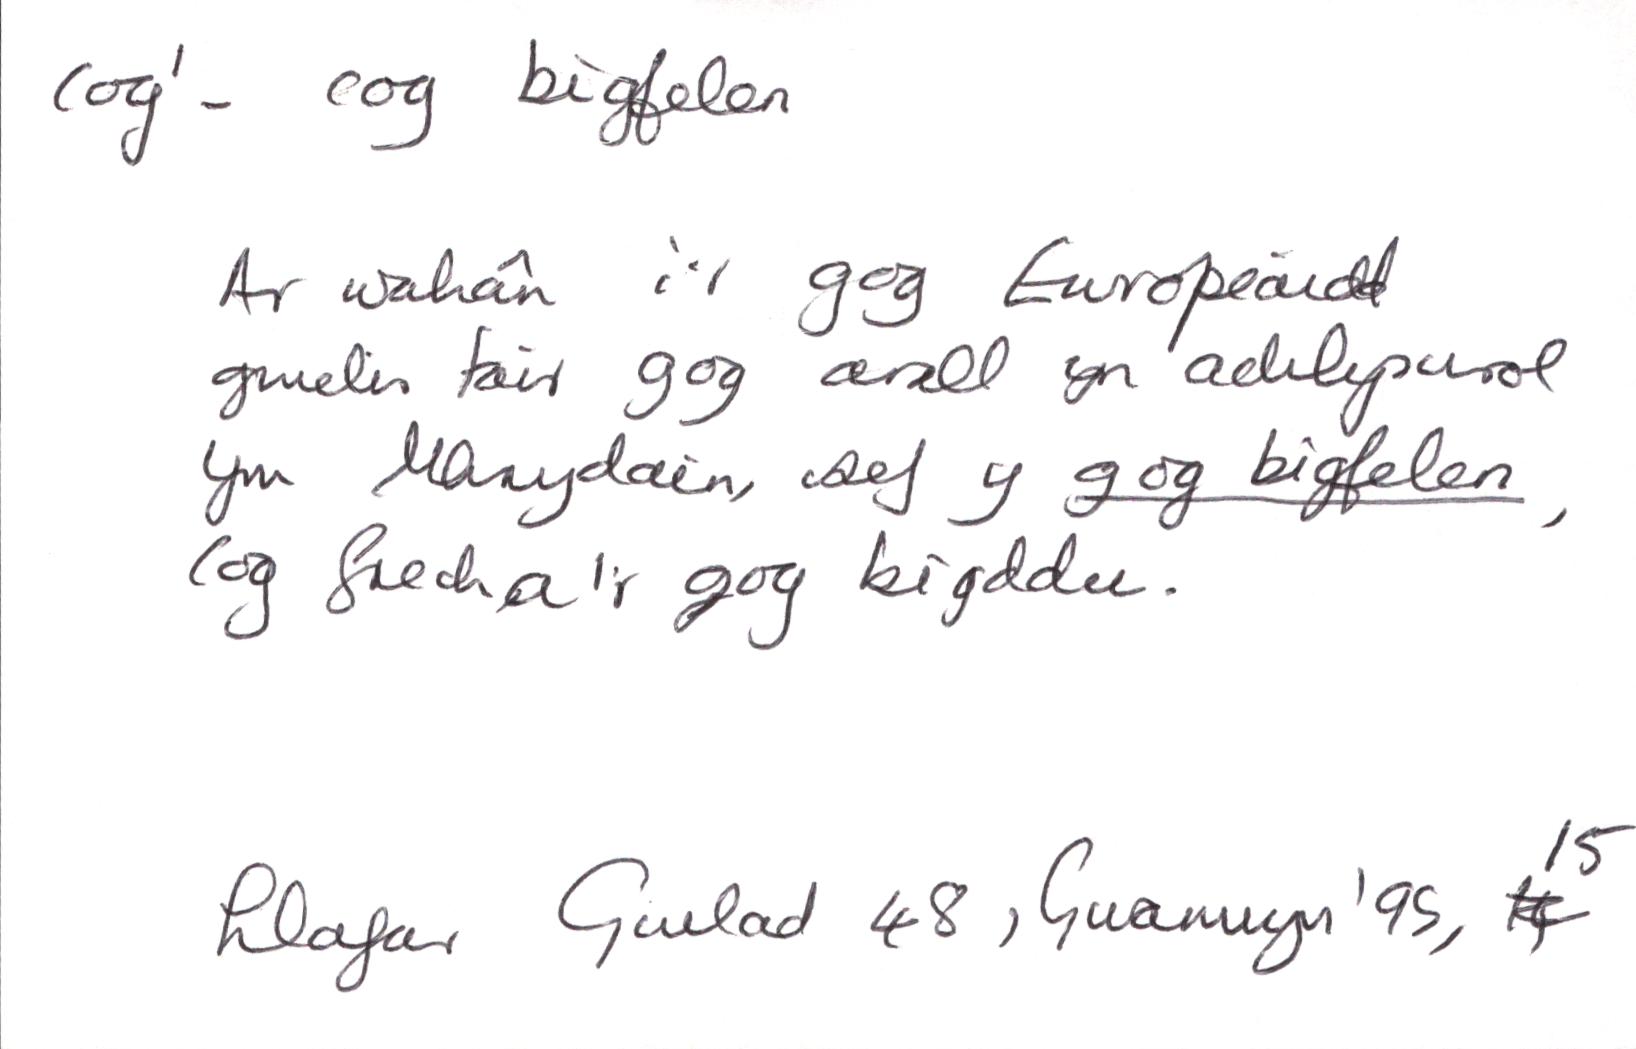 cog¹ - cog bigfelen
Ar wahân i'r gog Europeaidd
gwelir tair gog arall yn achlysurol
ym Mhrydain, sef y gog bigfelen,
cog frech a'r gog bigddu.
Llafar Gwlad 48, Gwanwyn '95, 15